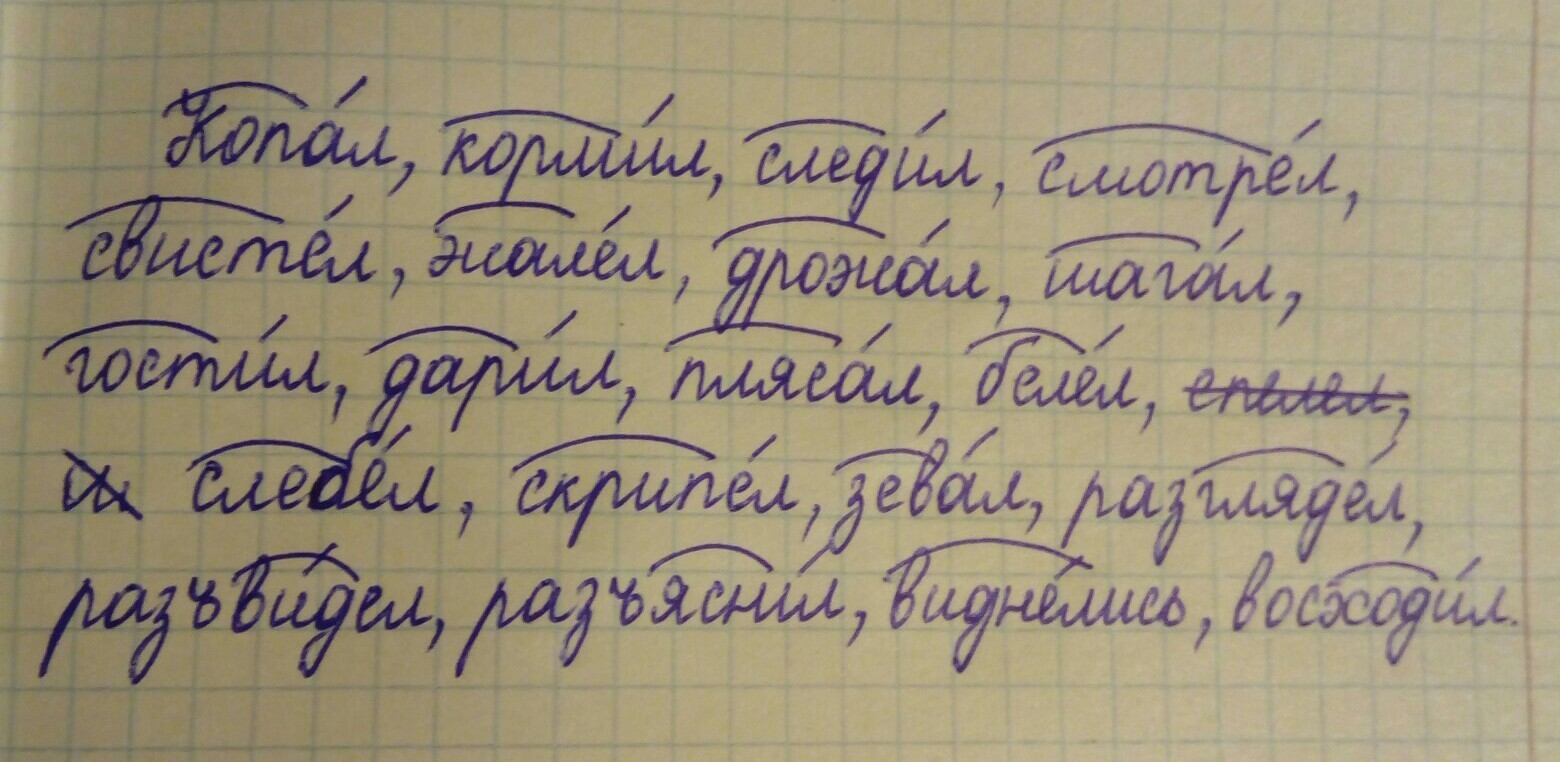 Копа́л, корми́л, следи́л, смотре́л,
свисте́л, жале́л, дрожа́л, шага́л,
гости́л, дари́л, пляса́л, беле́л, спелел,
слебе́л, скрипе́л, зева́л, разгляде́л,
разъви́дел, разъясни́л, видне́лись, восходи́л.